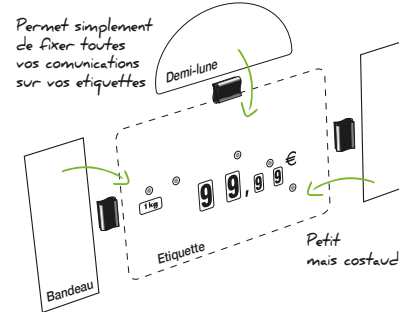 Permet simplement
de fixer toutes
vos comunications
sur vos etiquettes
Demi-lune
1 kg
99,99 €
Etiquette
Bandeau
Petit
mais costaud